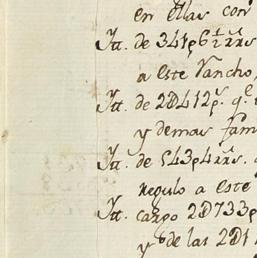 en ellas con
Itt. de 341p6½rrs
a este Rancho,
Itt. de 2D412ps. qe.
y demas fam
Itt. de 543p4rrs.
regulo a este
Itt. cargo 2D733p
y de las 2D1